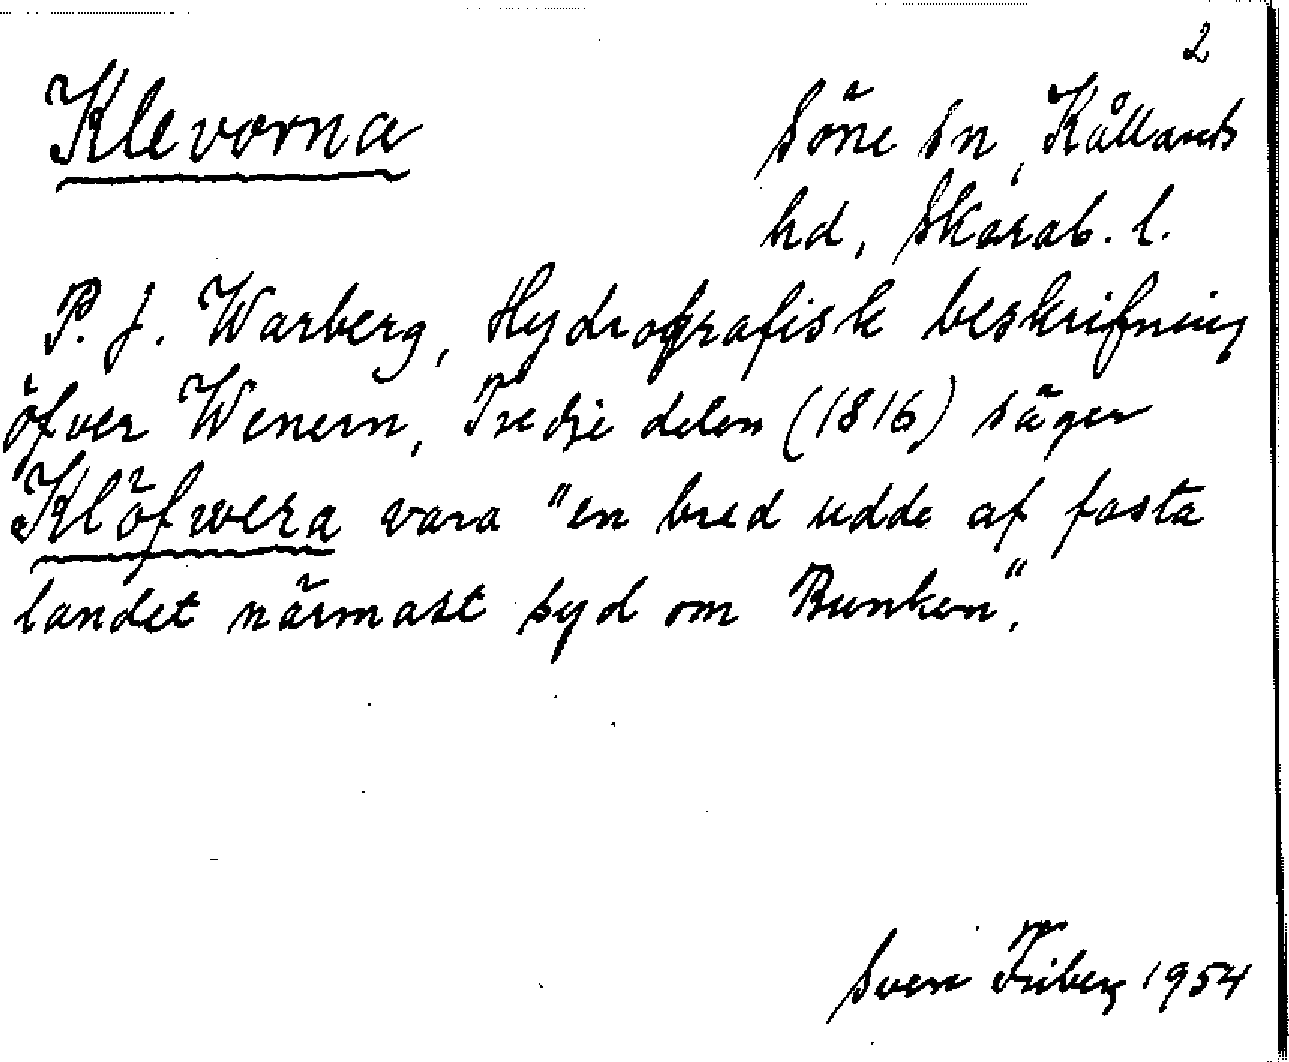 2
Klevorna
Söne sn, Kållands
hd, Skarab. l.
P. J. Warberg, Hydrografisk beskrifning
öfver Wenern, Tredje delen (1816) säger
Klöfwera vara "en bred udde af fasta
landet närmast syd om Runken".
Sven Friberg 1954